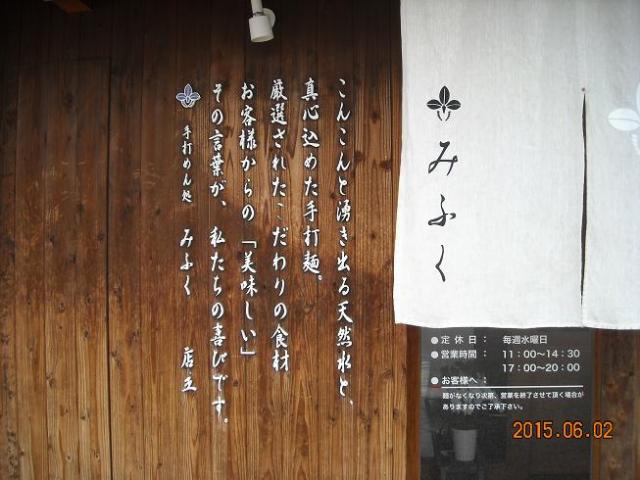 こんこんと湧き出る天然水と、
真心込めた手打麺。
厳選されたこだわりの食材
お客様からの「美味しい」
その言葉が、私たちの喜びです。
手打めん処 みふく 店主
みふく
●定休日： 毎週水曜日
●営業時間： 11：00〜14：30
17：00〜20：00
●お客様へ：
麺がなくなり次第、営業を終了させて頂く場合が
ありますのでご了承下さい。
2015.06.02